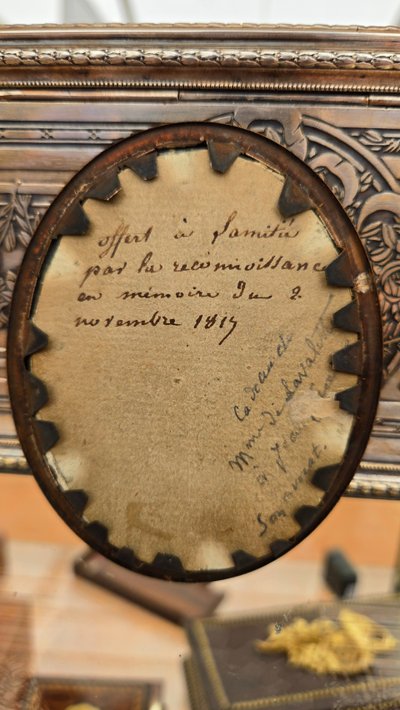 offert à l'amitié
par la reconnoissance
en mémoire du 2
novembre 1817
Cadeau de
Mme de Lavalette
à
Sommerat.